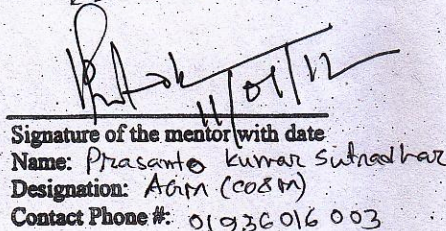 11/01/12
Signature of the mentor with date
Name: Prasanto kumar Sutradhar
Designation: AGM (CO&M)
Contact Phone #: 01936016 003